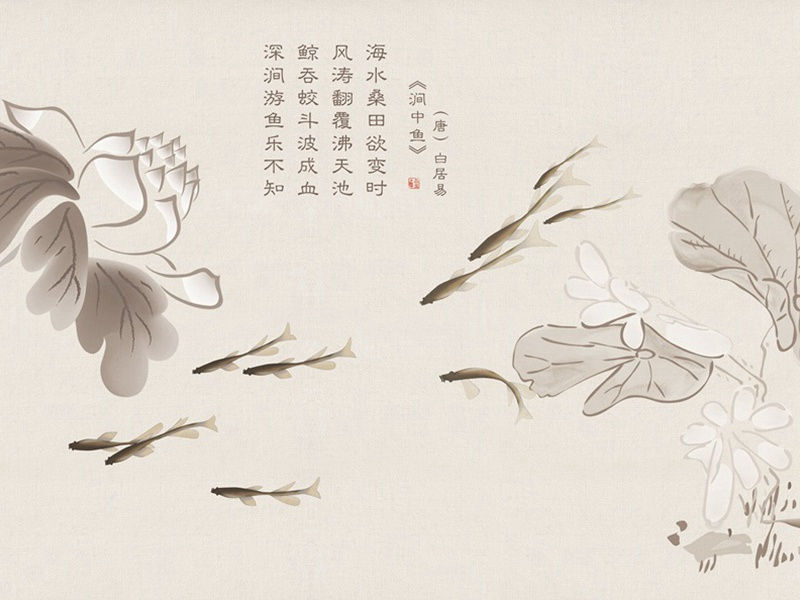 《涧中鱼》
(唐)白居易
海水桑田欲变时
风涛翻覆沸天池
鲸吞蛟斗波成血
深涧游鱼乐不知